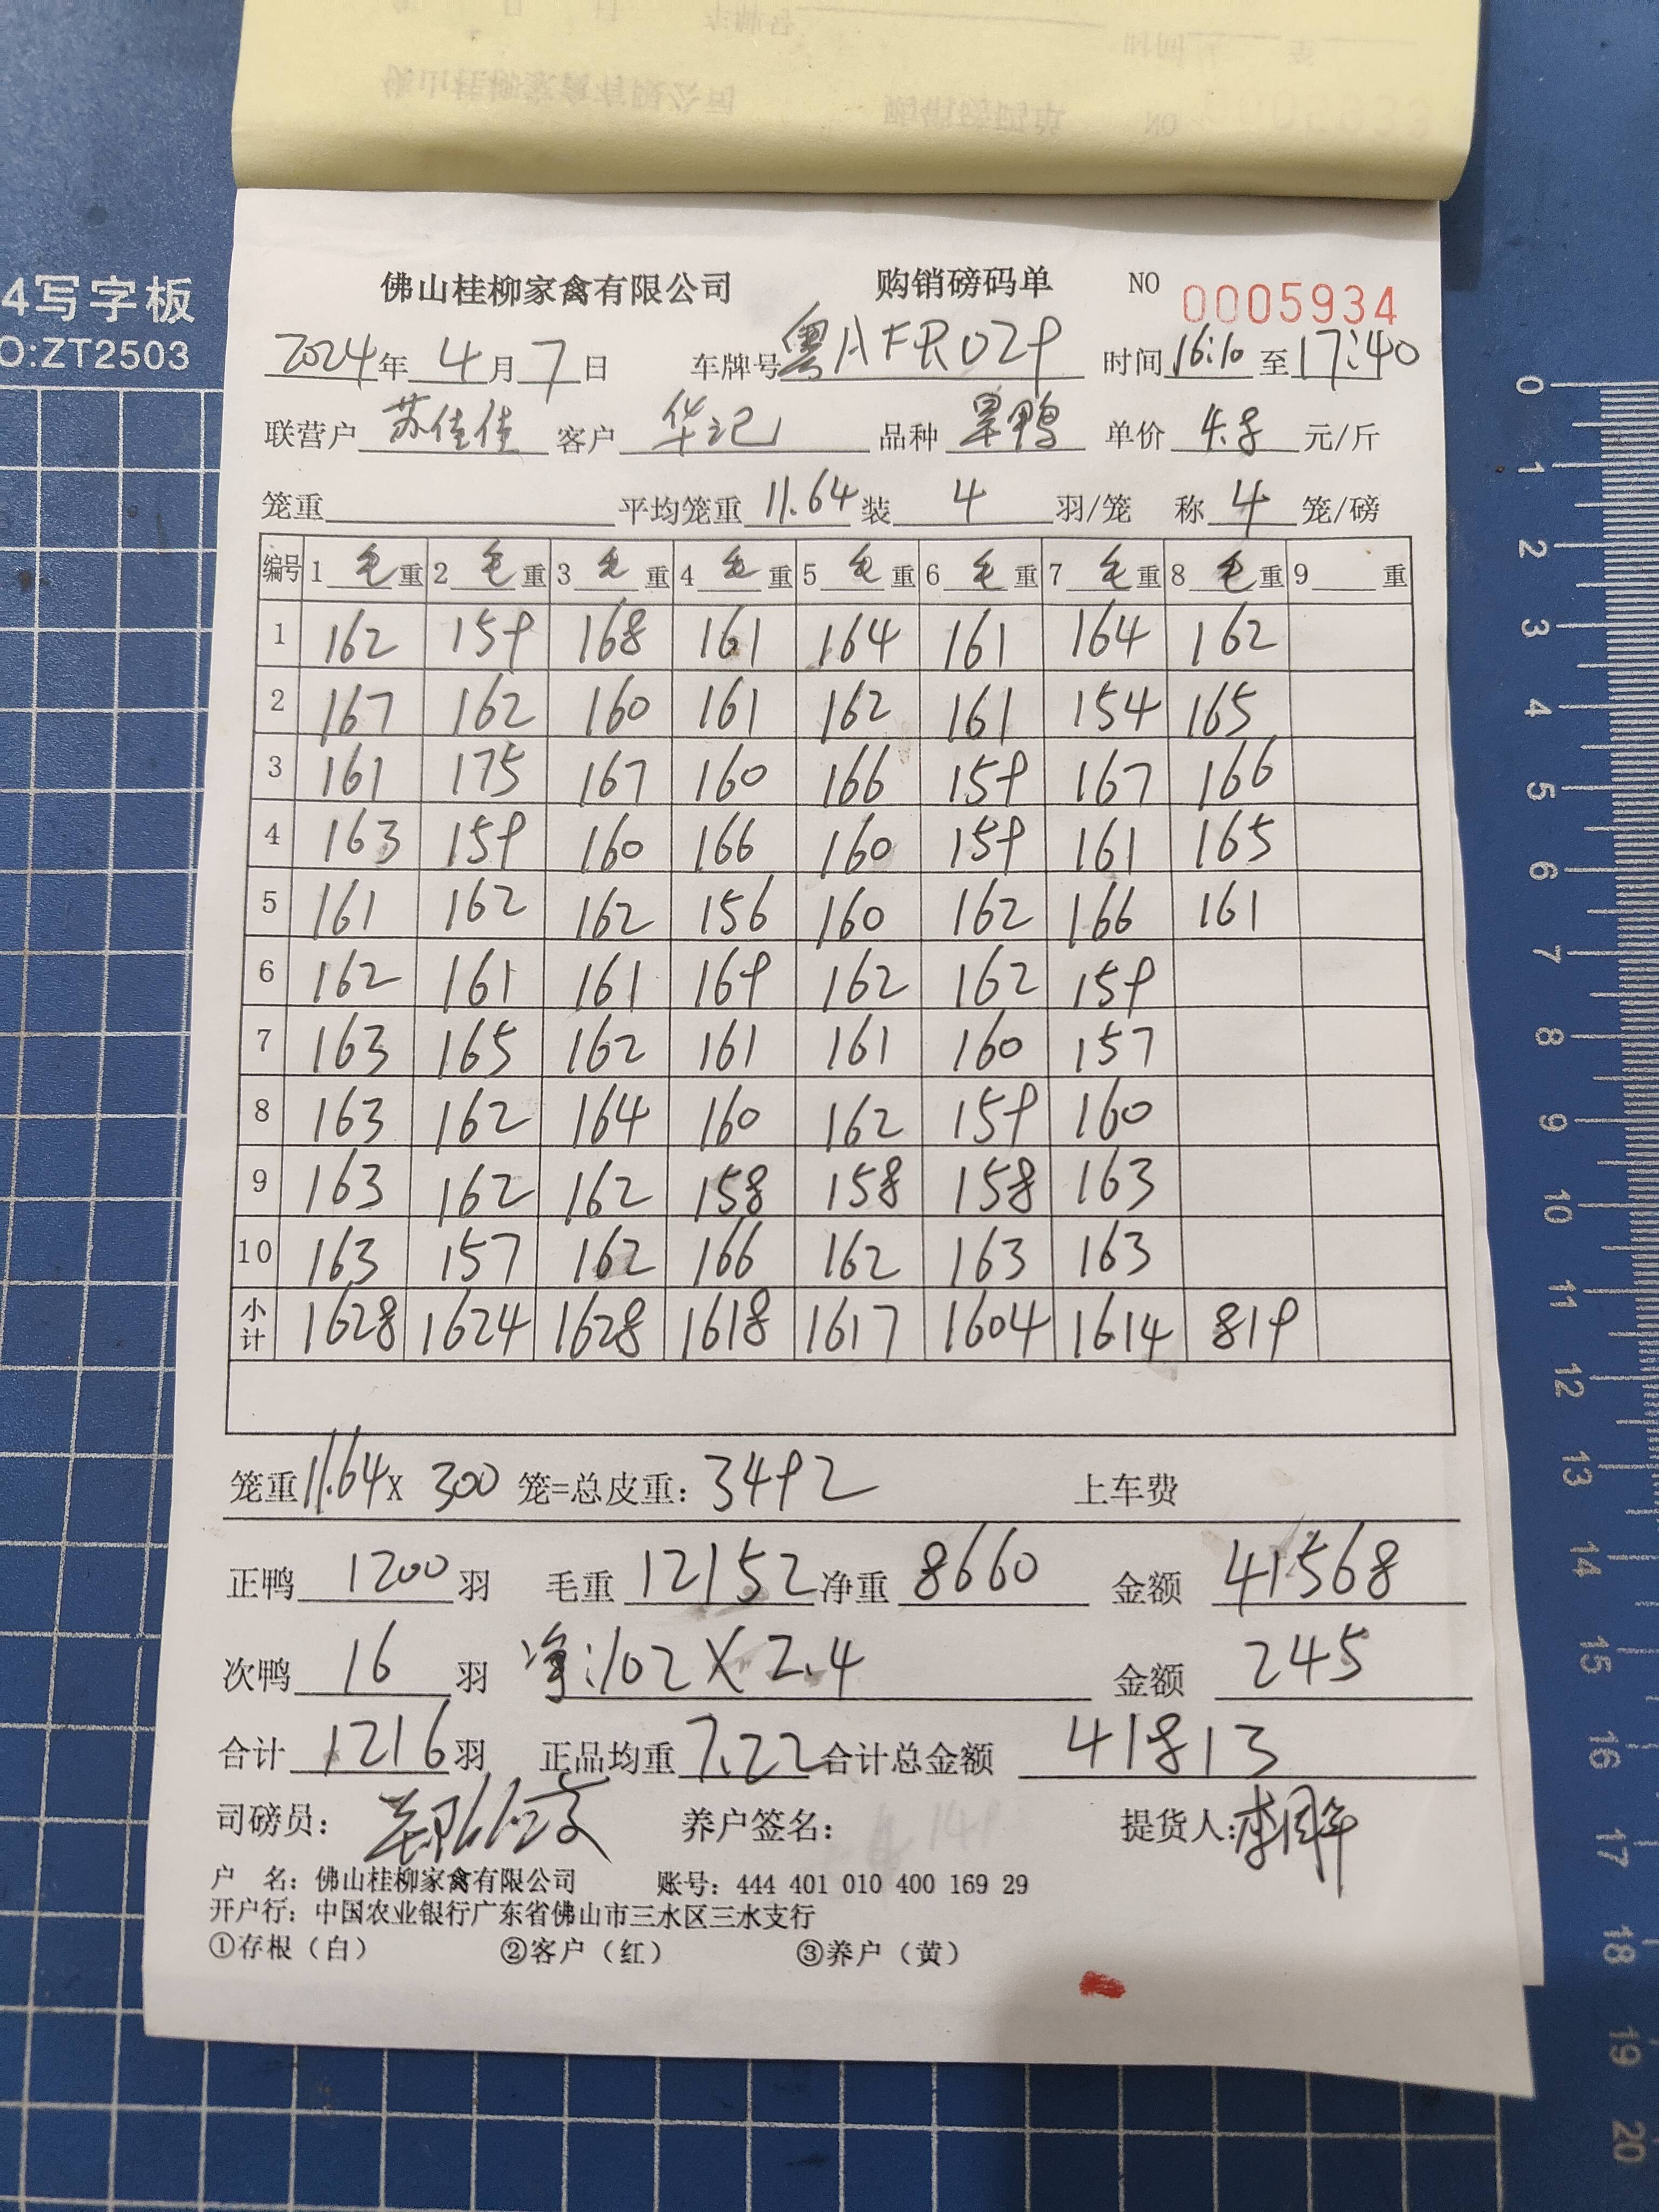 4写字板
O:ZT2503
佛山桂柳家禽有限公司 购销磅码单 NO 0005934
2024年4月7日 车牌号粤AFR029 时间16:10至17:40
联营户 苏佳佳 客户 华记 品种 旱鸭 单价 4.8 元/斤
笼重 平均笼重 11.64 装 4 羽/笼 称 4 笼/磅
编号 1毛重 2毛重 3毛重 4毛重 5毛重 6毛重 7毛重 8毛重 9重
1 162 159 168 161 164 161 164 162
2 167 162 160 161 162 161 154 165
3 161 175 167 160 166 159 167 166
4 163 159 160 166 160 159 161 165
5 161 162 162 156 160 162 166 161
6 162 161 161 169 162 162 159
7 163 165 162 161 161 160 157
8 163 162 164 160 162 159 160
9 163 162 162 158 158 158 163
10 163 157 162 166 162 163 163
小计 1628 1624 1628 1618 1617 1604 1614 819
笼重11.64X 300 笼=总皮重：3492 上车费
正鸭 1200 羽 毛重 12152 净重 8660 金额 41568
次鸭 16 羽 净:102X2.4 金额 245
合计 1216 羽 正品均重 7.22 合计总金额 41813
司磅员： 养户签名： 提货人：
户 名：佛山桂柳家禽有限公司 账号：444 401 010 400 169 29
开户行：中国农业银行广东省佛山市三水区三水支行
①存根（白） ②客户（红） ③养户（黄）
0
1
2
3
4
5
6
7
8
9
10
11
12
13
14
15
16
17
18
19
20